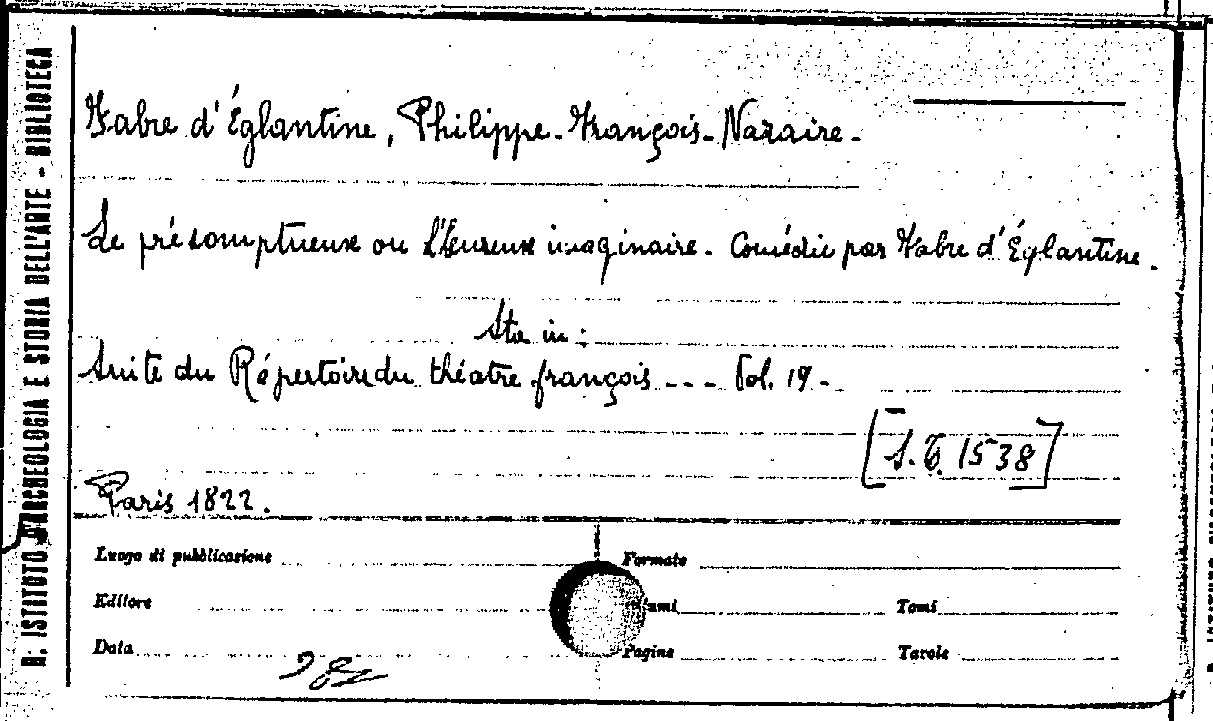 R. ISTITUTO D'ARCHEOLOGIA E STORIA DELL'ARTE - BIBLIOTECA
Fabre d'Églantine, Philippe-François-Nazaire.
Le présomptueux ou l'Heureux imaginaire. Comédie par Fabre d'Églantine.
Sta in:
Suite du Répertoire du théatre françois --- Vol. 19.
[S.T. 1538]
Paris 1822.
Luogo di pubblicazione
Formato
Editore
Tomi
Data
Pagine
Tavole